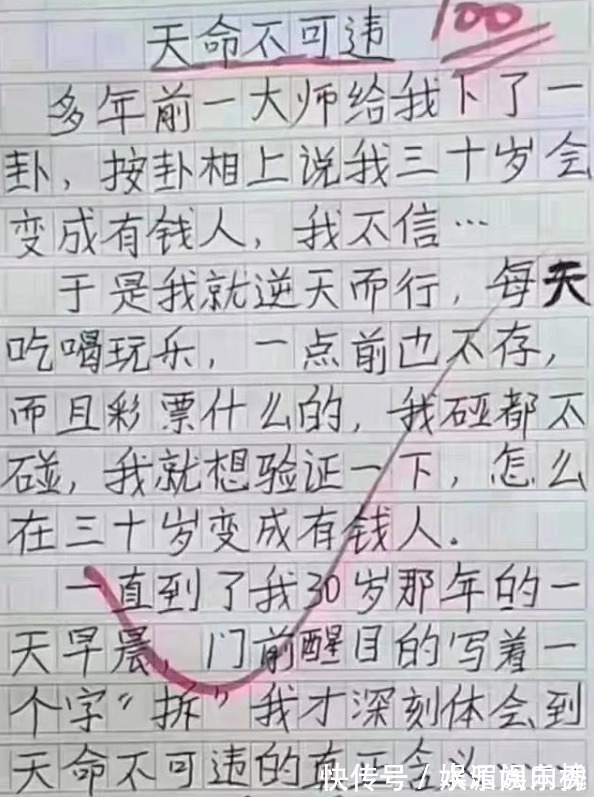 天命不可违 100
多年前一大师给我下了一
卦，按卦相上说我三十岁会
变成有钱人，我不信…
于是我就逆天而行，每天
吃喝玩乐，一点前也不存，
而且彩票什么的，我碰都不
碰，我就想验证一下，怎么
在三十岁变成有钱人。
一直到了我30岁那年的一
天早晨，门前醒目的写着一
个字“拆”我才深刻体会到
天命不可违的真正含义
快传号／